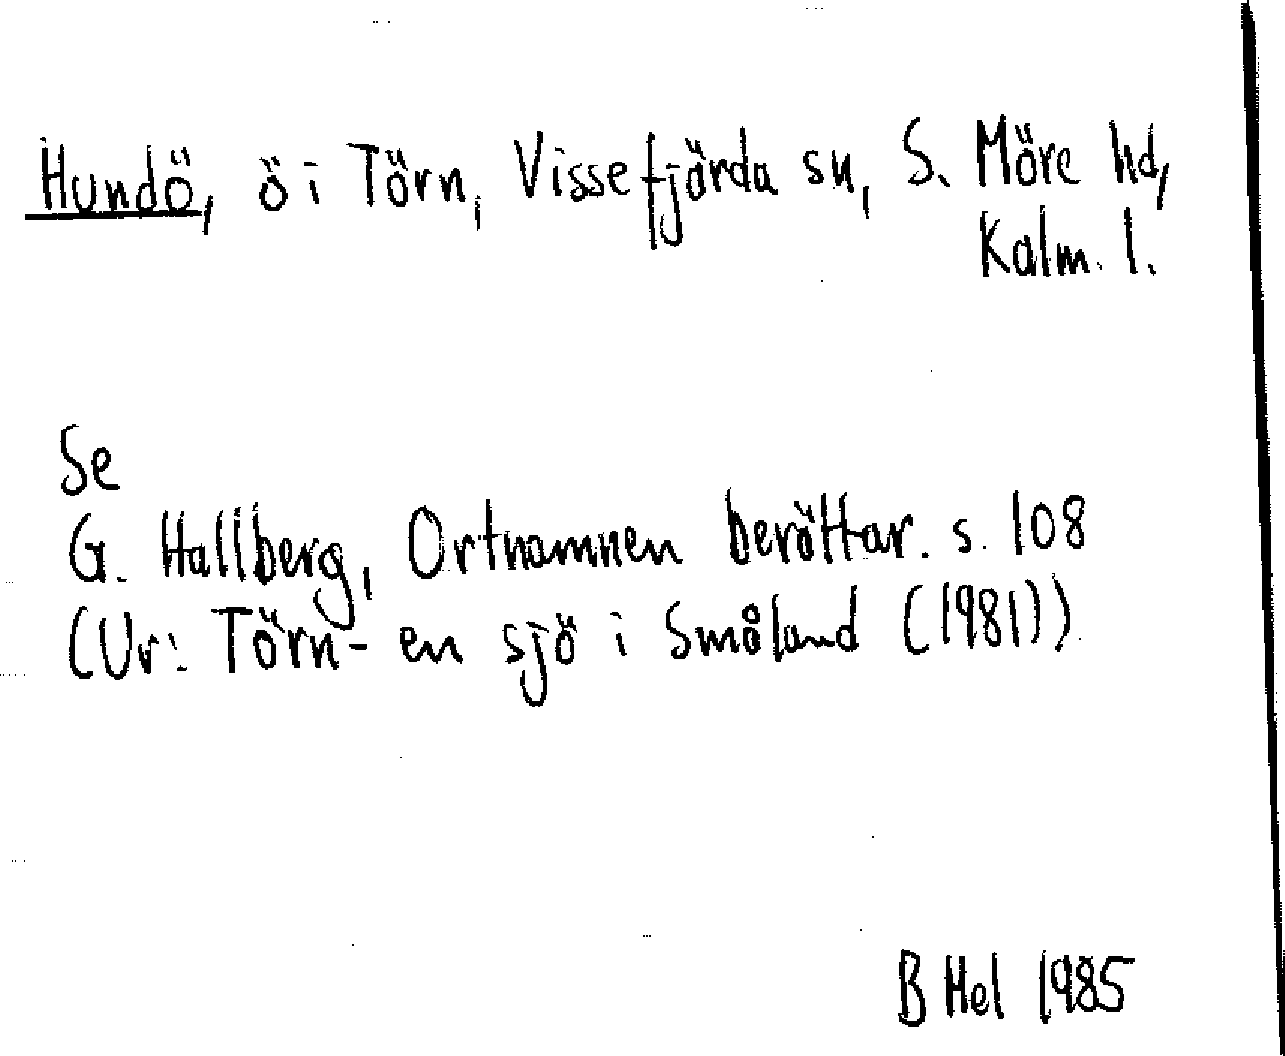 Hundö, ö i Törn, Vissefjärda sn, S. Möre hd,
Kalm. l.
Se
G. Hallberg, Ortnamnen berättar. s. 108
(Ur: Törn - en sjö i Småland (1981))
B Hel 1985